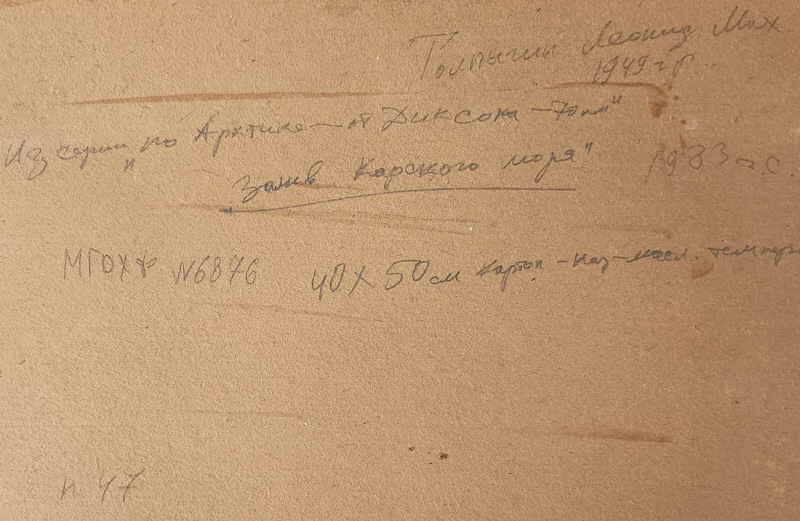 Толпыгин Леонид Мих.
1949 г.р.
Из серии "по Арктике – от Диксона – 70 км"
"Залив Карского моря"
1983 г.с.
МГОХФ N6876 40X50 см картон – каз-масл. темпера
н 47